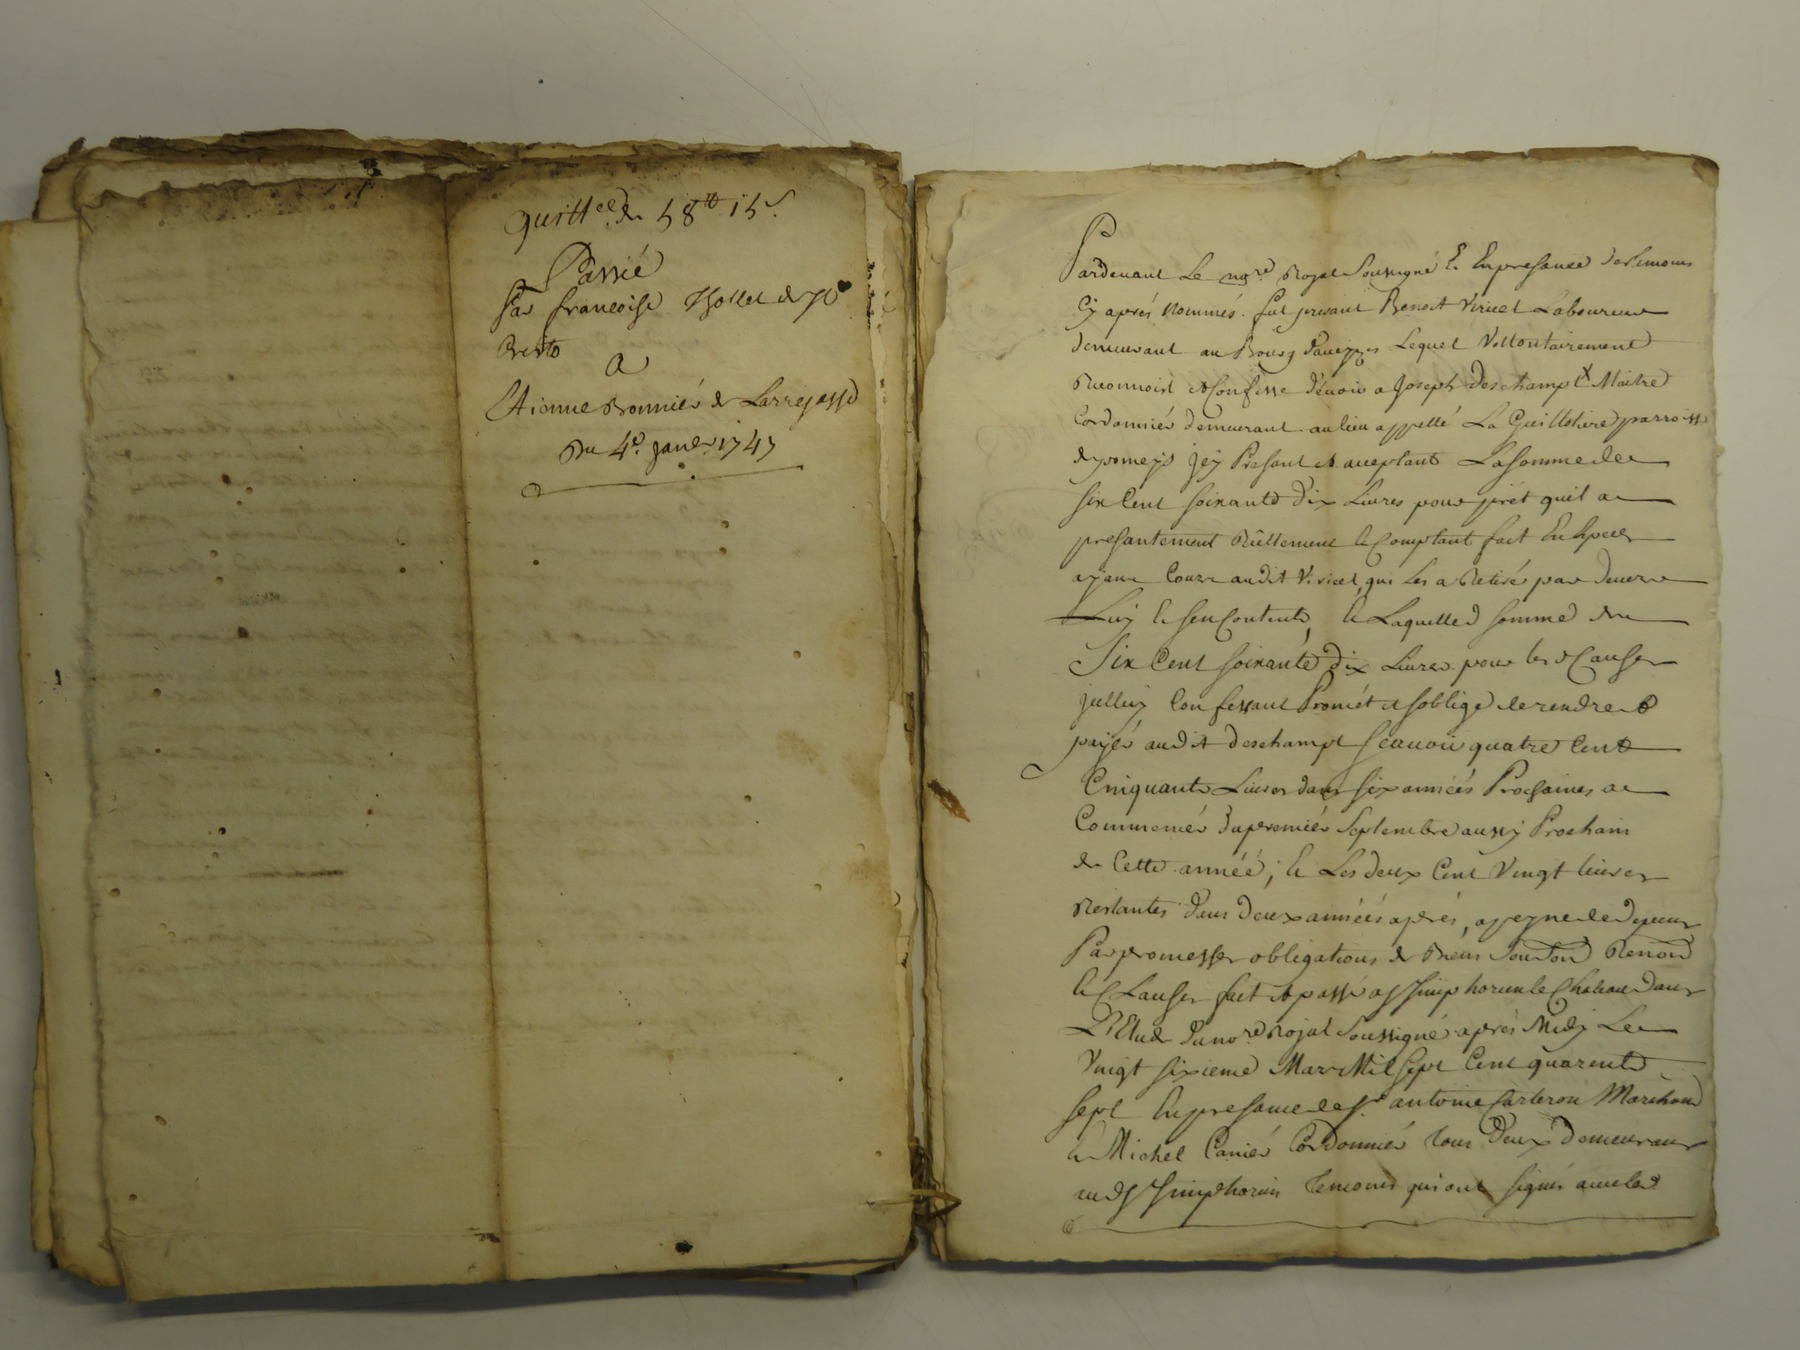 quitt.ce de 58tt 15s.
Passée
Par francoise Thollet de St
A
Etienne Bonnier de Larrejasse
Du 4e. Janer. 1747
Pardevant Le nore. Royal soussigné & En presance des temoins
Cy aprés nommés. fut presant Benoit Viricel Laboureur
demeurant au Bourg d'aveyzes Lequel Vollontairement
Reconnoit et Confesse d'evoir a Joseph deschampt Maitre
Cordonniér demeurant au lieu appellé La Guillotiere parroisse
de pomeys Jcy Presant et acceptant La somme de
six Cent soixante dix Livres pour prét quil a
presantement Réellement & Comptant fait En Especes
ayant Cours audit Viricel, qui Les a Retiré par devers
Luy & sen Contente, & Laquelle somme de
Six Cent soixante dix Livres pour les Causes
jcelluy Confessant Promét et soblige de rendre &
payér audit deschampt scauoir quatre Cent
Cinquante Livres dans six années Prochaines a
Commencér du premiér Septembre aussy Prochain
de Cette année ; & Les deux Cent Vingt livres
Restantes dans deux années aprés, a peyne de depens
Par promesses obligations de Biens Renon
& Clauses fait et passé a St Simphorien le Chateau dans
L'Etude du nore Royal soussigné aprés Midy Le
Vingt sixieme Mars Mil sept Cent quarente
sept En presance de sr antoine Carteron Marchand
& Michel Caniér Cordonniér tous deux demeurans
aud St Simphorien temoins qui ont signés avec led